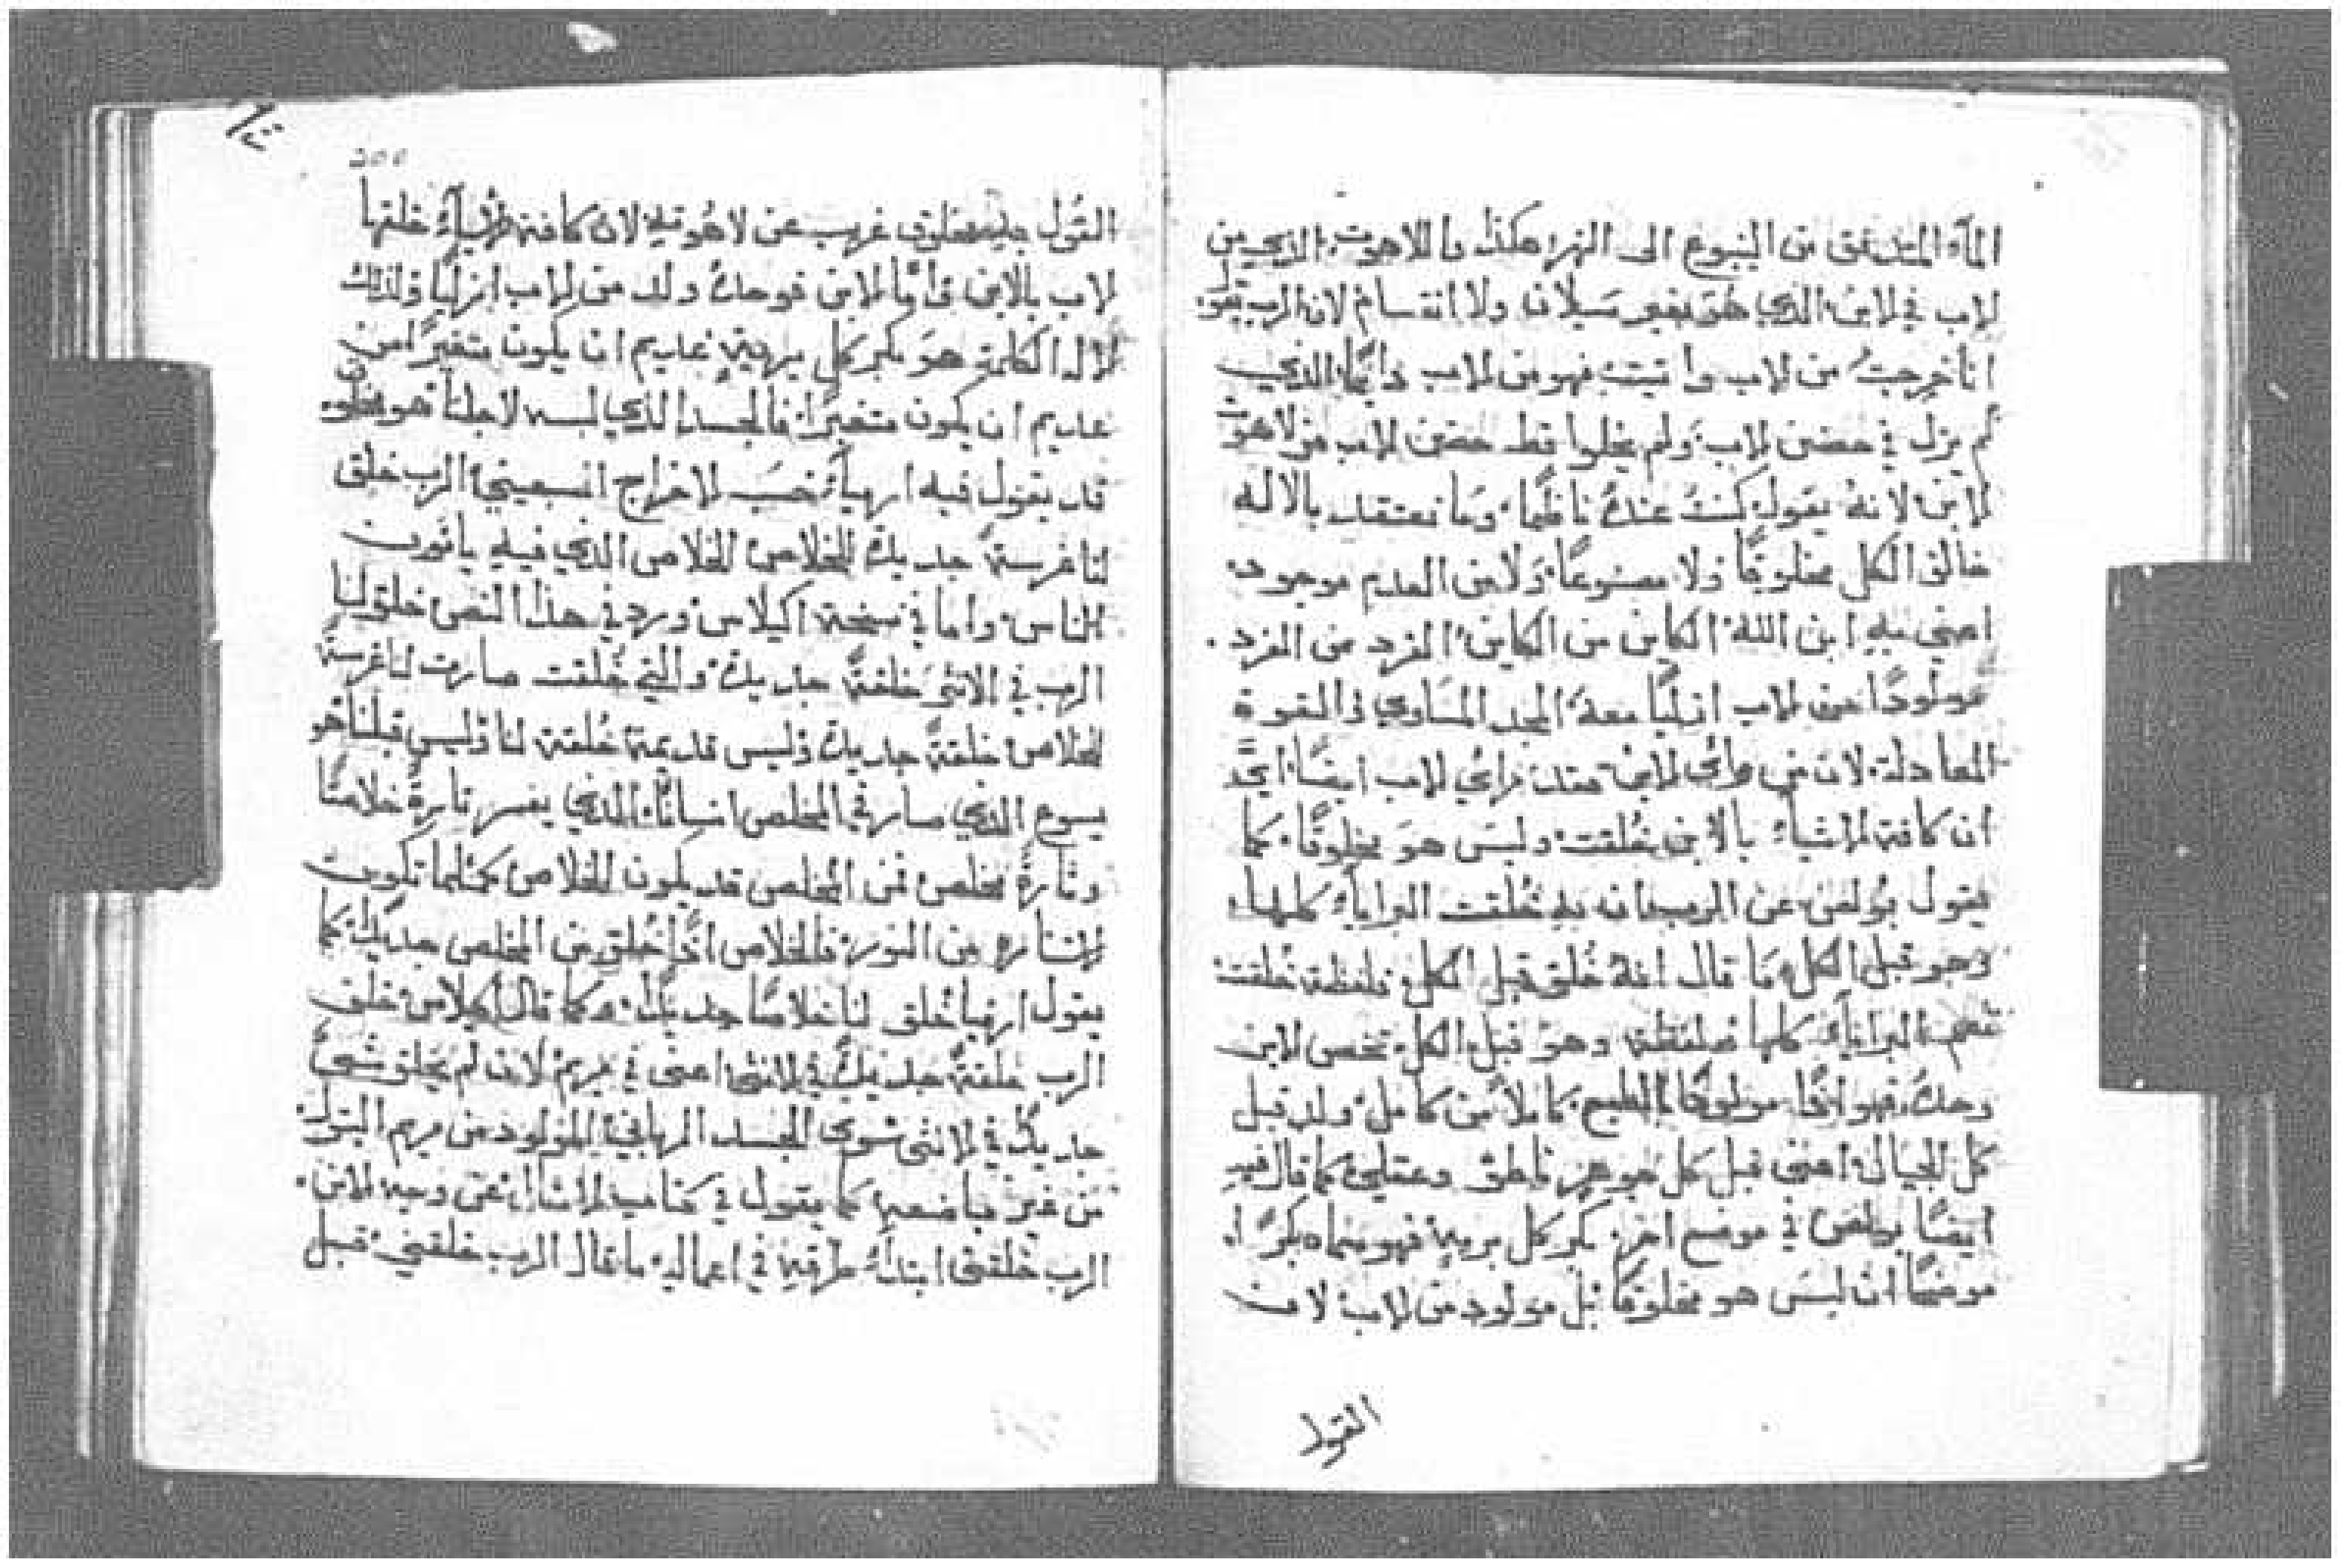 المآء المتدفق من الينبوع الى النهر هكذا باللاهوت الذي من
لاب في الابن الذي هو بغير سيلان ولا انقسام لان الرب يقول
انا خرجتُ من لاب واتيت فهو من لاب دائمًا الذي
لم يزل في حضن لاب ولم يخلوا قط حضن لاب من لاهوت
لابن لانه يقول كنتُ عنده ناظمًا وما نعتقد بالاله
خالق الكل مخلوقًا ولا مصنوعًا ولا من العدم موجود
اعني به ابن الله الكاين من الكاين المفرد من المفرد
مولودًا من لاب ازليًا معه المجد المساوي والقوة
المعادلة لان من راى لابن فقد راى لاب ايضًا
ان كافة الاشياء بالابن خُلقت وليسَ هو مخلوقًا كما
يقول بولص عن الرب انه به خُلقت البرايا كلها
وهو قبل الكل ما قال انه خُلق قبل الكل فلفظة خُلقت
تعم البرايا كلها ولفظة وهو قبل الكل تخص لابن
وحده فهو اذًا مولودًا بالطبع كاملاً من كامل ولد قبل
كل الجبال اعني قبل كل جوهر ناطق وعقلي كما قال فيه
ايضًا بولص في موضع اخر بكر كل برية فهو سماه بكرًا
موضحًا ان ليسَ هو مخلوقًا بل مولود من لاب لان
القول
٢٠٠
القول مخلوق غريب عن لاهوته لان كافة الاشيآء خلقها
لاب بالابن واما لابن فوحده ولد من لاب ازليًا ولذلك
لاله الكلمة هو بكر كل برية عديم ان يكون متغيرًا من
عديم ان يكون متغيرًا فالجسد الذي لبسه لاجلنا هو مخلوق
قد يقول فيه ارميا حسب لاخراج السبعيني الرب خلق
لنا غرسة جديدة للخلاص الخلاص الذي فيه ياتون
الناس واما في نسخة اكيلاس ورد في هذا النص خلق لنا
الرب في الانثى خلقةً جديدة والتي خُلقت صارت لنا غرسة
للخلاص خلقةً جديدة وليس قديمة خُلقة لنا وليس قبلنا هو
يسوع الذي صار في المخلص انسانًا الذي يفسر تارةً خلاصًا
وتارةً مخلص فمن المخلص قد يكون الخلاص كمثلما تكون
من النور فالخلاص اذًا خُلق من المخلص جديدًا كما
يقول ارميا خُلق لنا خلاصًا جديدًا وكما قال اكيلاس خلق
الرب خلقةً جديدةً في لانثى اعني في مريم لان لم يخلق شيءٌ
جديدٌ في لانثى سوى الجسد الرباني المولود من مريم البتول
من غير مباضعة كما يقول في كتاب الامثال عن وجه لابن
الرب خلقني ابتداء طرقه في اعماله ما قال الرب خلقني قبل